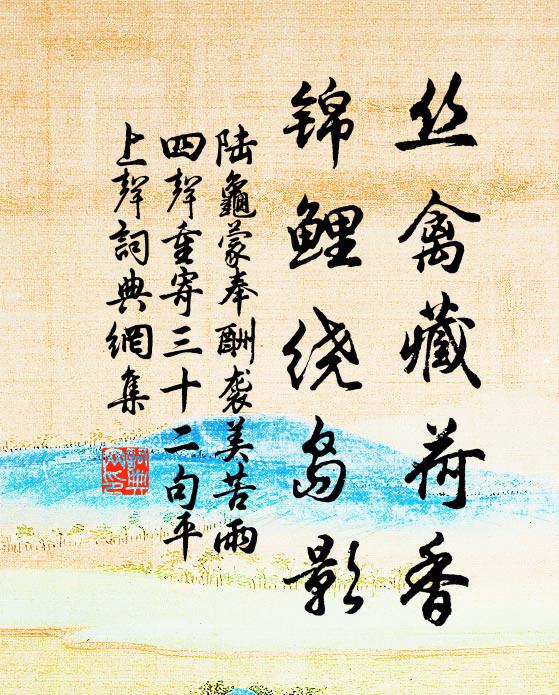 丝禽藏荷香
锦鲤绕岛影
陆龜蒙奉酬袭美苦雨
四聲重寄三十二句平
上聲詞典網集